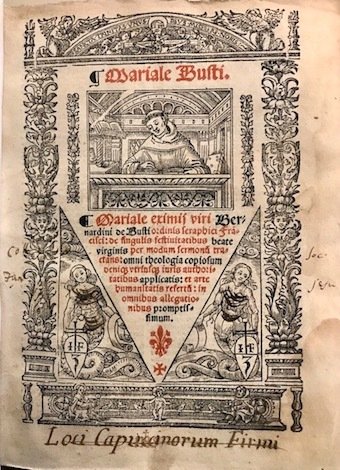 ¶ Mariale Busti.
¶ Mariale eximij viri Ber-
nardini de Busti ordinis seraphici Frā-
cisci: de singulis festiuitatibus beate
virginis per modum sermonū tra-
ctans: omni theologia copiosum
deniq; vtriusq; iuris authori-
tatibus applicatis: et arte
humanitatis refertū: in
omnibus allegatio-
nibus promptis-
simum.
I F
Loci Capucinorum Firmi